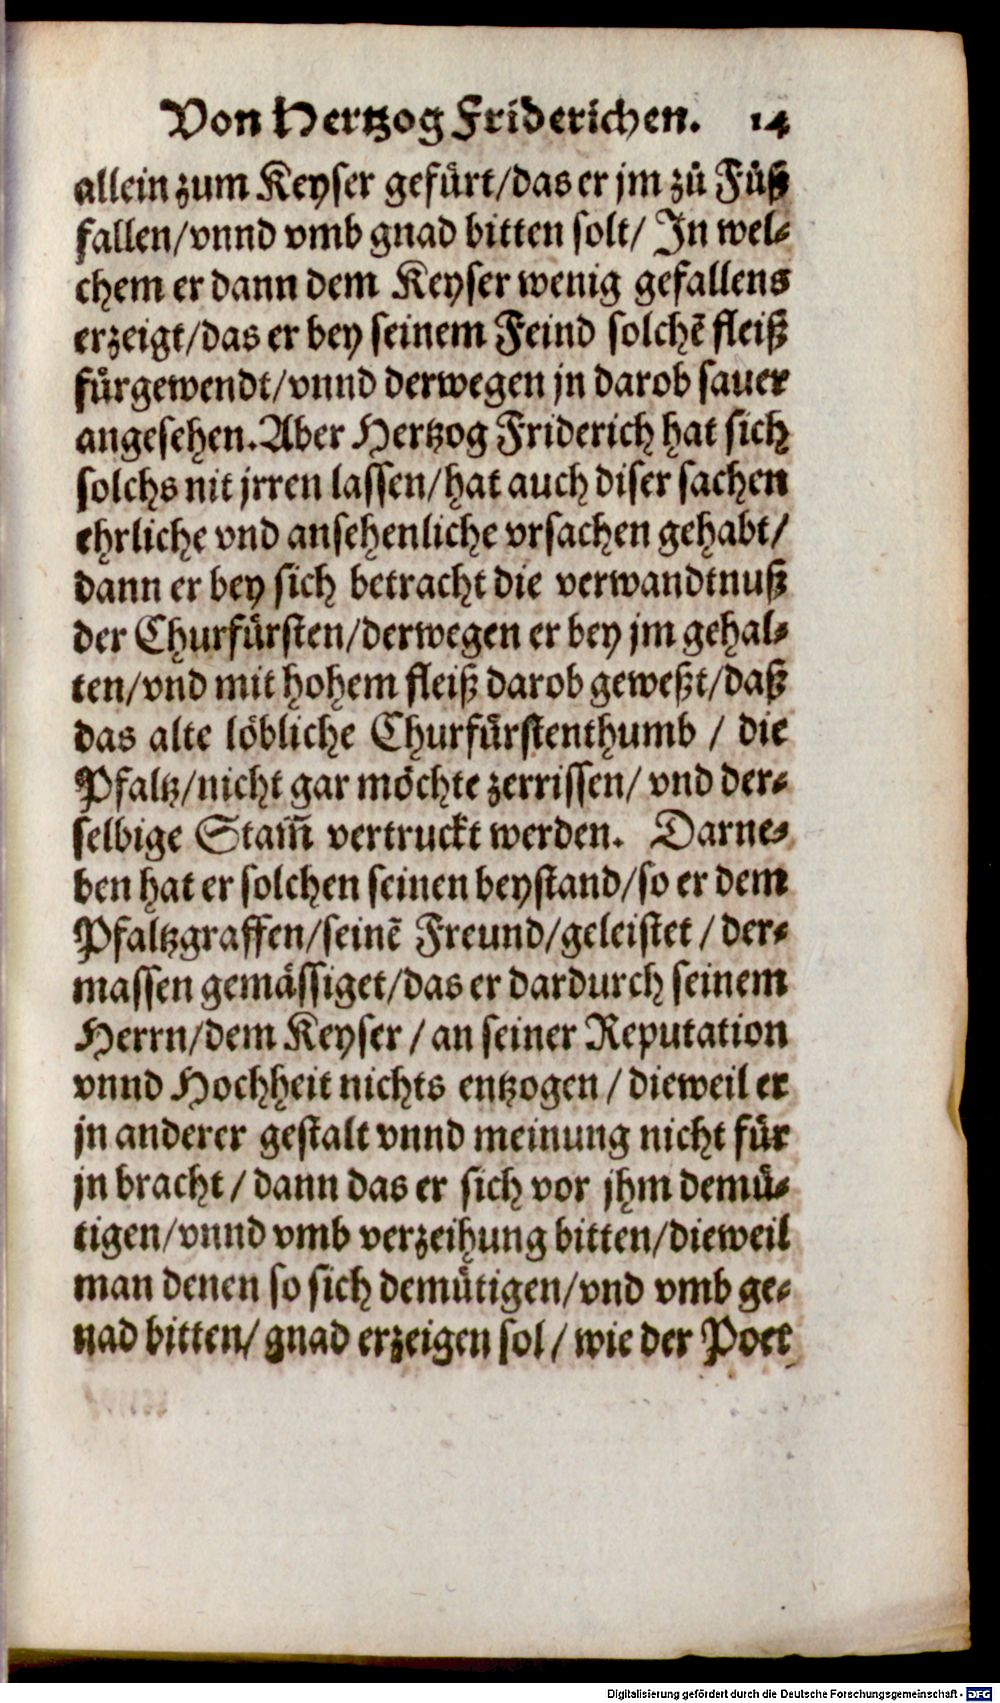 Von Hertzog Friderichen. 14
allein zum Keyser gefürt/das er jm zů Füß
fallen/vnnd vmb gnad bitten solt/ In wel-
chem er dann dem Keyser wenig gefallens
erzeigt/das er bey seinem Feind solchẽ fleiß
fürgewendt/vnnd derwegen jn darob sauer
angesehen. Aber Hertzog Friderich hat sich
solchs nit jrren lassen/hat auch diser sachen
ehrliche vnd ansehenliche vrsachen gehabt/
dann er bey sich betracht die verwandtnuß
der Churfürsten/derwegen er bey jm gehal-
ten/vnd mit hohem fleiß darob geweßt/daß
das alte löbliche Churfürstenthumb / die
Pfaltz/nicht gar möchte zerrissen/ vnd der-
selbige Stam̃ vertruckt werden. Darne-
ben hat er solchen seinen beystand/so er dem
Pfaltzgraffen/seinẽ Freund/geleistet / der-
massen gemässiget/das er dardurch seinem
Herrn/dem Keyser / an seiner Reputation
vnnd Hochheit nichts entzogen / dieweil er
jn anderer gestalt vnnd meinung nicht für
jn bracht / dann das er sich vor jhm demü-
tigen/vnnd vmb verzeihung bitten/dieweil
man denen so sich demütigen/vnd vmb ge-
nad bitten/ gnad erzeigen sol / wie der Poet
Digitalisierung gefördert durch die Deutsche Forschungsgemeinschaft - DFG